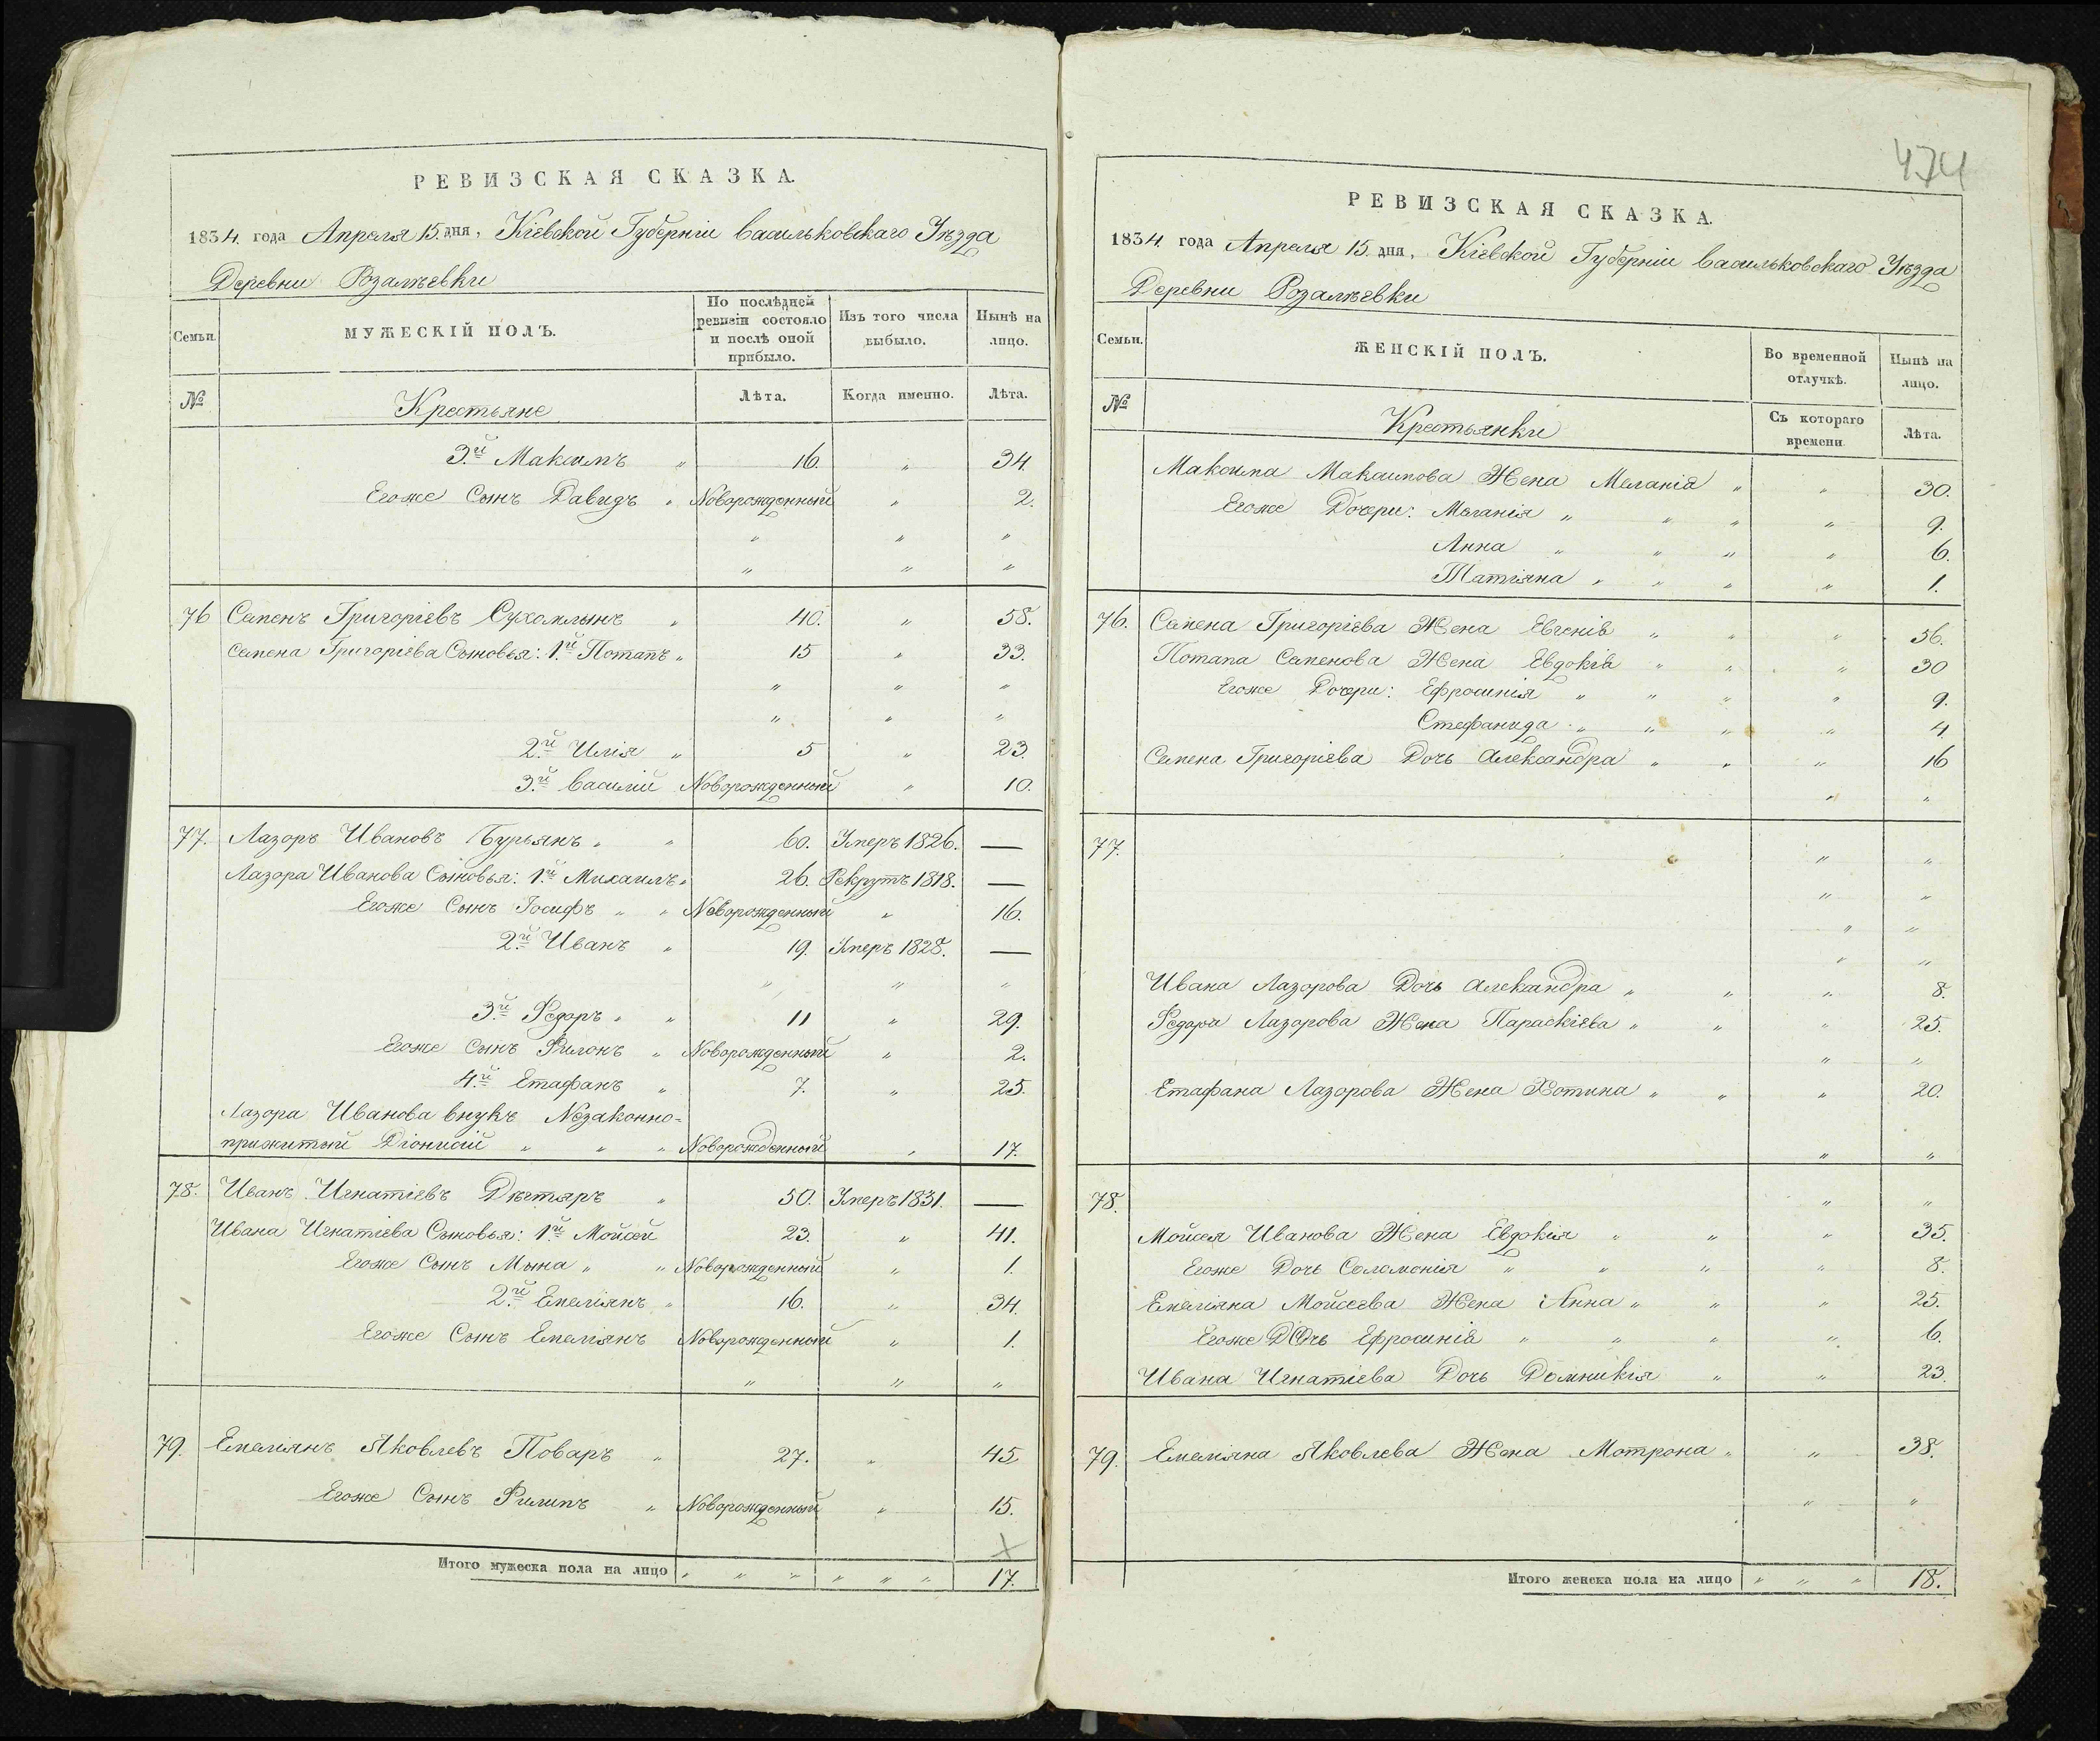 РЕВИЗСКАЯ СКАЗКА.
1834 года Апреля 15. дня, Кіевской Губерніи Васильковскаго Уѣзда
Деревни Розалѣевки
Семьи.
МУЖЕСКІЙ ПОЛЪ.
По послѣдней ревизіи состояло и послѣ оной прибыло.
Изъ того числа выбыло.
Нынѣ на лицо.
№
Крестьяне
Лѣта.
Когда именно.
Лѣта.
3.й Максимъ " 16. " 34.
Егоже Сынъ Давидъ " Новорожденный " 2.
" " "
" " "
76 Семенъ Григоріевъ Сухомлынъ " 40. " 58.
Семена Григоріева Сыновья: 1.й Потапъ " 15 " 33.
" " "
" " "
2.й Илія " 5 " 23.
3.й Василій Новорожденный " 10.
77. Лазоръ Ивановъ Бурьянъ " " 60. Умеръ 1826. —
Лазора Иванова Сыновья: 1.й Михаилъ " 26. Рекрутъ 1818. —
Егоже Сынъ Іосифъ " " Новорожденный " 16.
2.й Иванъ " 19. Умеръ 1828. —
" " "
3.й Федоръ " " 11 " 29.
Егоже Сынъ Филонъ " Новорожденный " 2.
4.й Етафанъ " 7. " 25.
Лазора Иванова внукъ Незаконно-
прижитый Діонисій " " " Новорожденный " 17.
78. Иванъ Игнатіевъ Дѣгтяръ " 50. Умеръ 1831. —
Ивана Игнатіева Сыновья: 1.й Мойсей 23. " 41.
Егоже Сынъ Мына " " Новорожденный " 1.
2.й Емеліянъ " 16. " 34.
Егоже Сынъ Емеліянъ Новорожденный " 1.
" " "
79. Емеліянъ Яковлевъ Поваръ " 27. " 45
Егоже Сынъ Филипъ " Новорожденный " 15.
Итого мужеска пола на лицо " " " " " " 17.
474
РЕВИЗСКАЯ СКАЗКА.
1834 года Апреля 15. дня, Кіевской Губерніи Васильковскаго Уѣзда
Деревни Розалѣевки
Семьи.
ЖЕНСКІЙ ПОЛЪ.
Во временной отлучкѣ.
Нынѣ на лицо.
№
Крестьянки
Съ котораго времени.
Лѣта.
Максима Максимова Жена Меланія " " 30.
Егоже Дочери: Меланія " " " " 9.
Анна " " " " 6.
Татіяна " " " " 1.
76. Семена Григоріева Жена Евгенія " " " 56.
Потапа Семенова Жена Евдокія " " " 30
Егоже Дочери: Ефросинія " " " " 9.
Стефанида " " " " 4
Семена Григоріева Дочь Александра " " " 16
" "
77. " "
" "
" "
" "
Ивана Лазорова Дочь Александра " " " 8.
Федора Лазорова Жена Параскіева " " " 25.
" "
Етафана Лазорова Жена Хотина " " " 20.
" "
78. " "
Мойсея Иванова Жена Евдокія " " " 35.
Егоже Дочь Соломонія " " " " 8.
Емеліяна Мойсеева Жена Анна " " " 25.
Егоже Дочь Ефросинія " " " " 6.
Ивана Игнатіева Дочь Домникія " " 23.
79. Емеліяна Яковлева Жена Мотрона " " 38.
" "
Итого женска пола на лицо " " " 18.